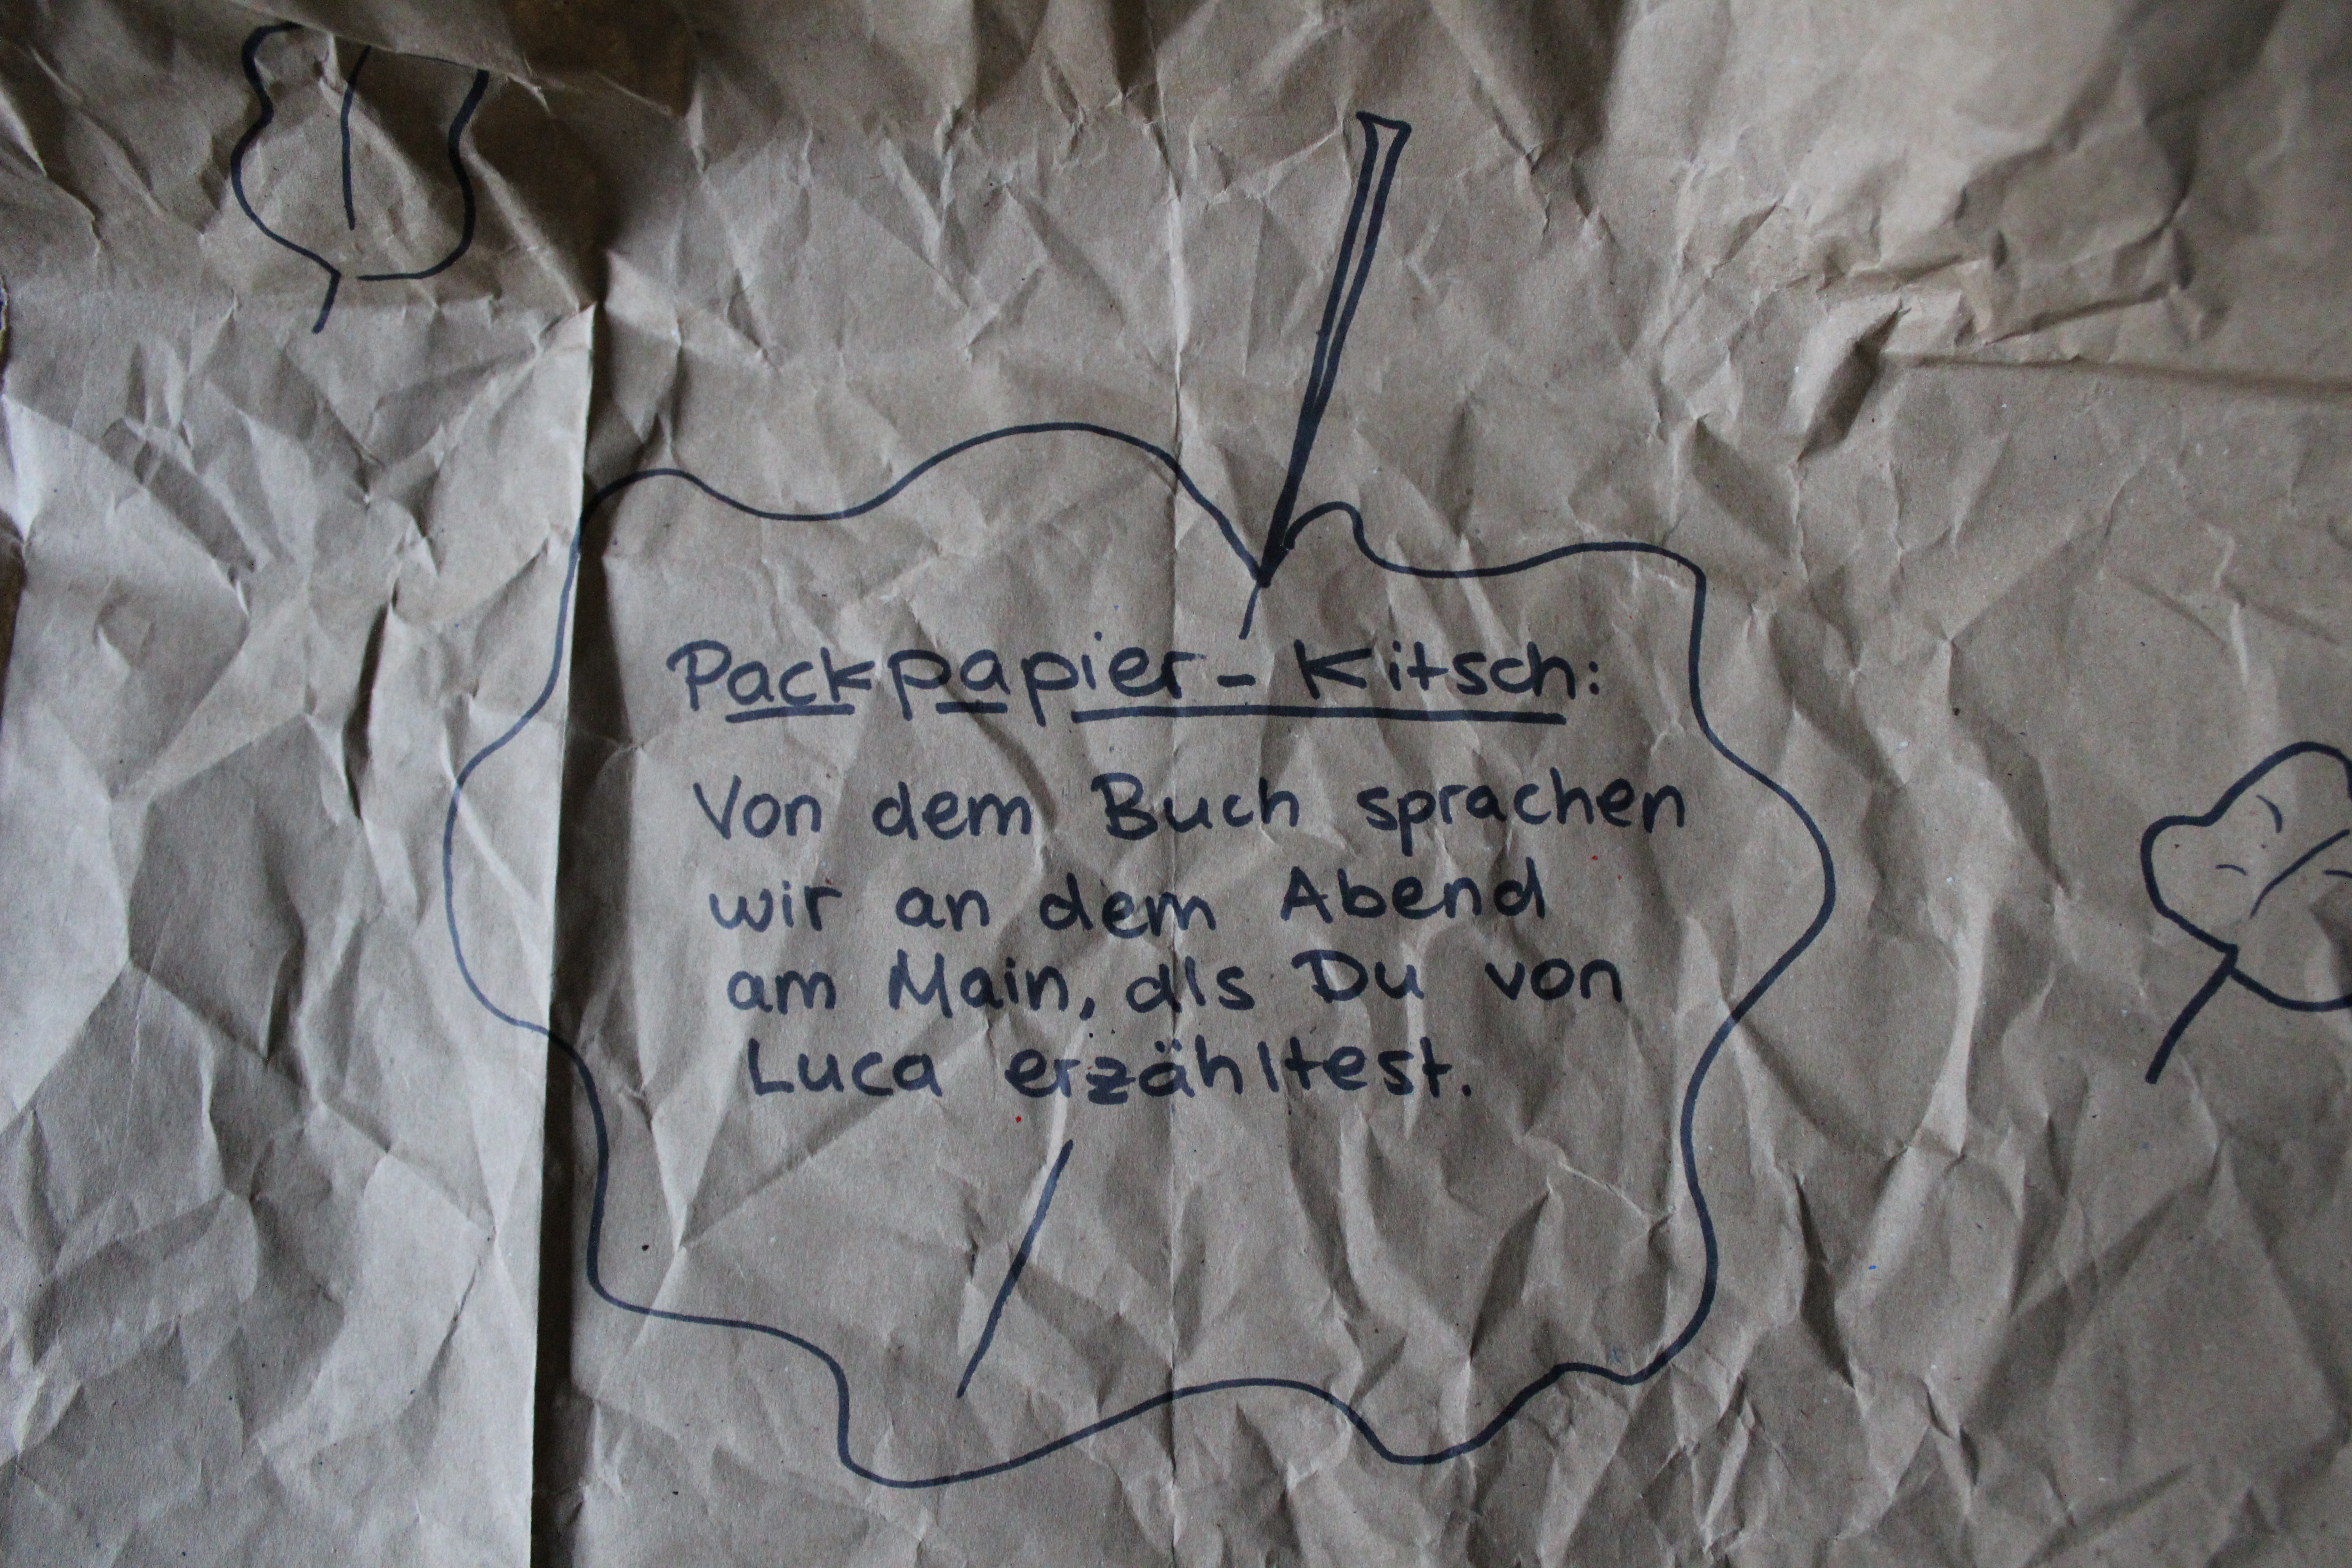 Packpapier-Kitsch:
Von dem Buch sprachen
wir an dem Abend
am Main, als Du von
Luca erzähltest.